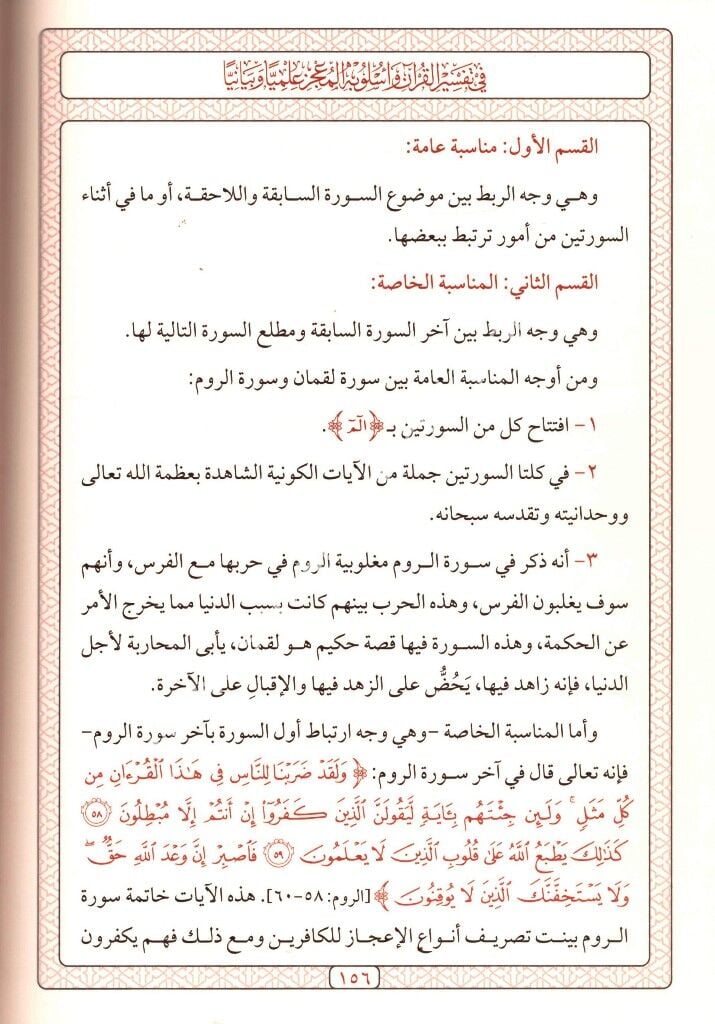 في تفسير القرآن وأسلوبه المعجز علميًا وبيانيًا
القسم الأول: مناسبة عامة:
وهـي وجه الربط بين موضوع السـورة السـابقة واللاحقـة، أو ما في أثناء
السورتين من أمور ترتبط ببعضها.
القسم الثاني: المناسبة الخاصة:
وهي وجه الربط بين آخر السورة السابقة ومطلع السورة التالية لها.
ومن أوجه المناسبة العامة بين سورة لقمان وسورة الروم:
١- افتتاح كل من السورتين بـ ﴿الٓمٓ﴾.
٢- في كلتا السورتين جملة من الآيات الكونية الشاهدة بعظمة الله تعالى
ووحدانيته وتقدسه سبحانه.
٣- أنه ذكر في سـورة الـروم مغلوبية الروم في حربها مـع الفرس، وأنهم
سوف يغلبون الفرس، وهذه الحرب بينهم كانت بسبب الدنيا مما يخرج الأمر
عن الحكمة، وهذه السـورة فيها قصة حكيم هـو لقمان، يأبى المحاربة لأجل
الدنيا، فإنه زاهد فيها، يَحُضُّ على الزهد فيها والإقبال على الآخرة.
وأما المناسبة الخاصة -وهي وجه ارتباط أول السورة بآخر سورة الروم-
فإنه تعالى قال في آخر سـورة الروم: ﴿وَلَقَدْ ضَرَبْنَا لِلنَّاسِ فِي هَٰذَا ٱلْقُرْءَانِ مِن
كُلِّ مَثَلٍۚ وَلَئِن جِئْتَهُم بِـَٔايَةٍ لَّيَقُولَنَّ ٱلَّذِينَ كَفَرُوٓا۟ إِنْ أَنتُمْ إِلَّا مُبْطِلُونَ ٥٨
كَذَٰلِكَ يَطْبَعُ ٱللَّهُ عَلَىٰ قُلُوبِ ٱلَّذِينَ لَا يَعْلَمُونَ ٥٩ فَٱصْبِرْ إِنَّ وَعْدَ ٱللَّهِ حَقٌّ ۖ
وَلَا يَسْتَخِفَّنَّكَ ٱلَّذِينَ لَا يُوقِنُونَ﴾ [الروم: ٥٨-٦٠]. هذه الآيات خاتمة سورة
الـروم بينـت تصريـف أنـواع الإعجـاز للكافريـن ومع ذلـك فهـم يكفرون
١٥٦